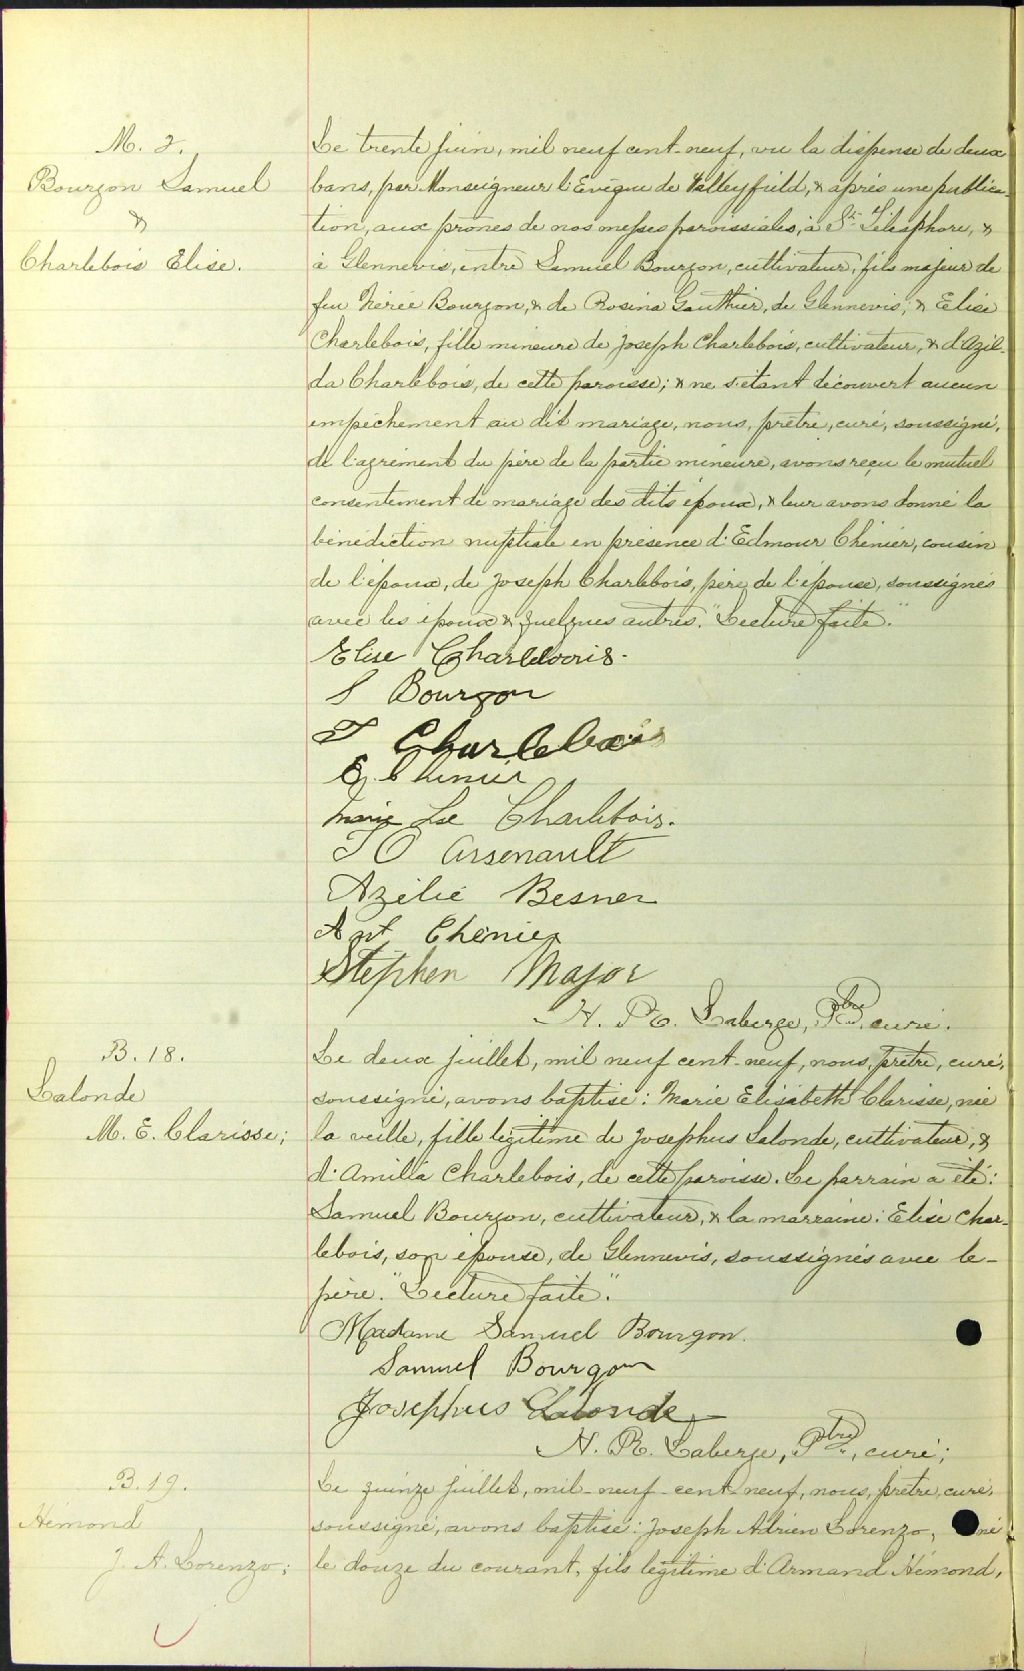 M. 2.
Bourgon Samuel
&
Charlebois Elise.
Le trente juin, mil neuf cent-neuf, vu la dispense de deux
bans, par Monseigneur l'Evêque de Valleyfield, & après une publica-
tion, aux prônes de nos messes paroissiales, à St. Télesphore, &
à Glennevis, entre Samuel Bourgon, cultivateur, fils majeur de
feu Nérée Bourgon, & de Rosina Gauthier, de Glennevis; & Elise
Charlebois, fille mineure de Joseph Charlebois, cultivateur, & d'Azil-
da Charlebois, de cette paroisse; & ne s'étant découvert aucun
empêchement au dit mariage, nous, prêtre, curé, soussigné,
de l'agrément du père de la partie mineure, avons reçu le mutuel
consentement de mariage des dits époux, & leur avons donné la
bénédiction nuptiale en présence d'Edmour Chénier, cousin
de l'époux, de Joseph Charlebois, père de l'épouse, soussignés
avec les époux & quelques autres. "Lecture faite."
Elise Charlebois.
S Bourgon
J Charlebois
E. Chénier
Marie Lse Charlebois.
J O Arsenault
Azélie Besner
Art Chénier
Stephen Major
H. R. Laberge, Ptre. curé.
B. 18.
Lalonde
M. E. Clarisse;
Le deux juillet, mil neuf cent-neuf, nous, prêtre, curé,
soussigné, avons baptisé: Marie Elisabeth Clarisse, née
la veille, fille légitime de Josephus Lalonde, cultivateur, &
d'Amilia Charlebois, de cette paroisse. Le parrain a été:
Samuel Bourgon, cultivateur, & la marraine: Elise Char-
lebois, son épouse, de Glennevis, soussignés avec le-
père. "Lecture faite."
Madame Samuel Bourgon.
Samuel Bourgon
Josephus Lalonde
H. R. Laberge, Ptre., curé;
B. 19.
Hémond
J. A. Lorenzo;
Le quinze juillet, mil-neuf-cent neuf, nous, prêtre, curé,
soussigné, avons baptisé: Joseph Adrien Lorenzo, né
le douze du courant, fils légitime d'Armand Hémond,